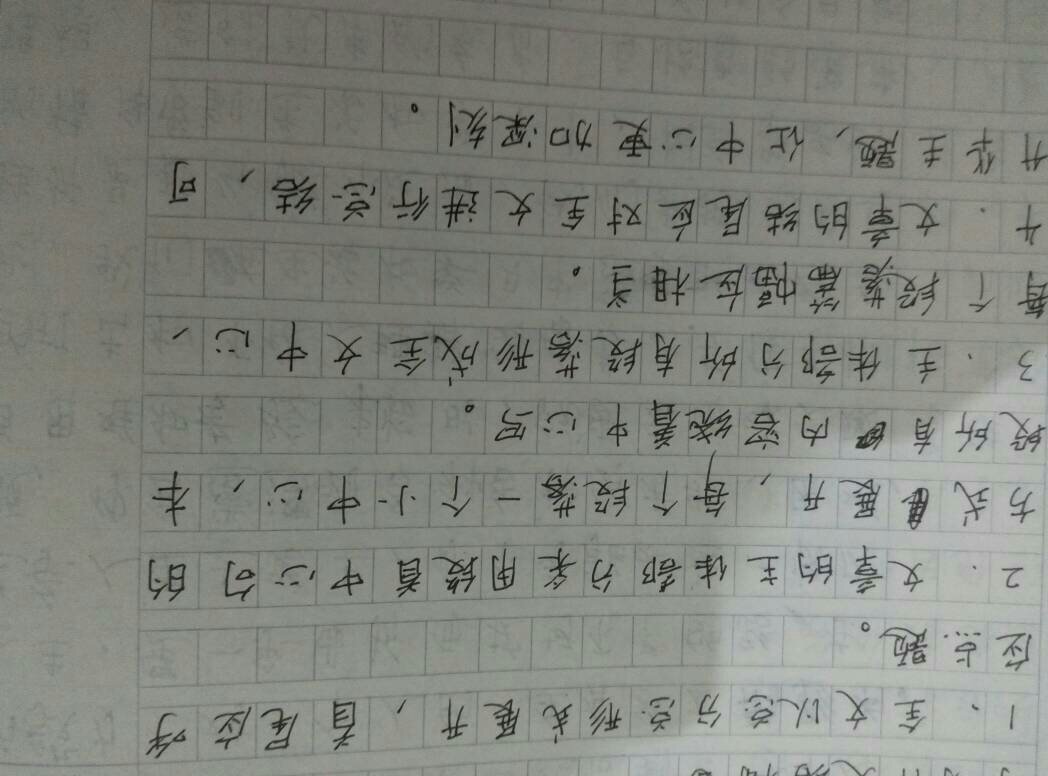 1、全文以总分总形式展开，首尾应呼
应点题。
2、文章的主体部分采用段首中心句的
方式展开，每个段落一个小中心，本
段所有内容绕着中心写。
3、主体部分所有段落形成全文中心，
每个段落篇幅应相当。
4、文章的结尾应对全文进行总结，可
升华主题，让中心更加深刻。